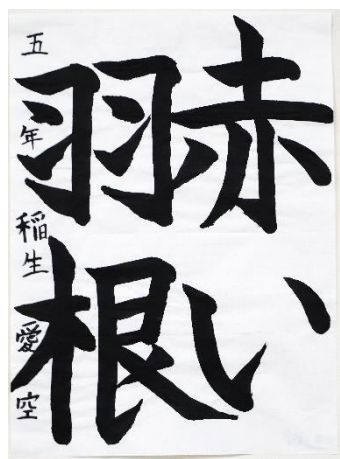 赤い
羽根
五年 稲生愛空